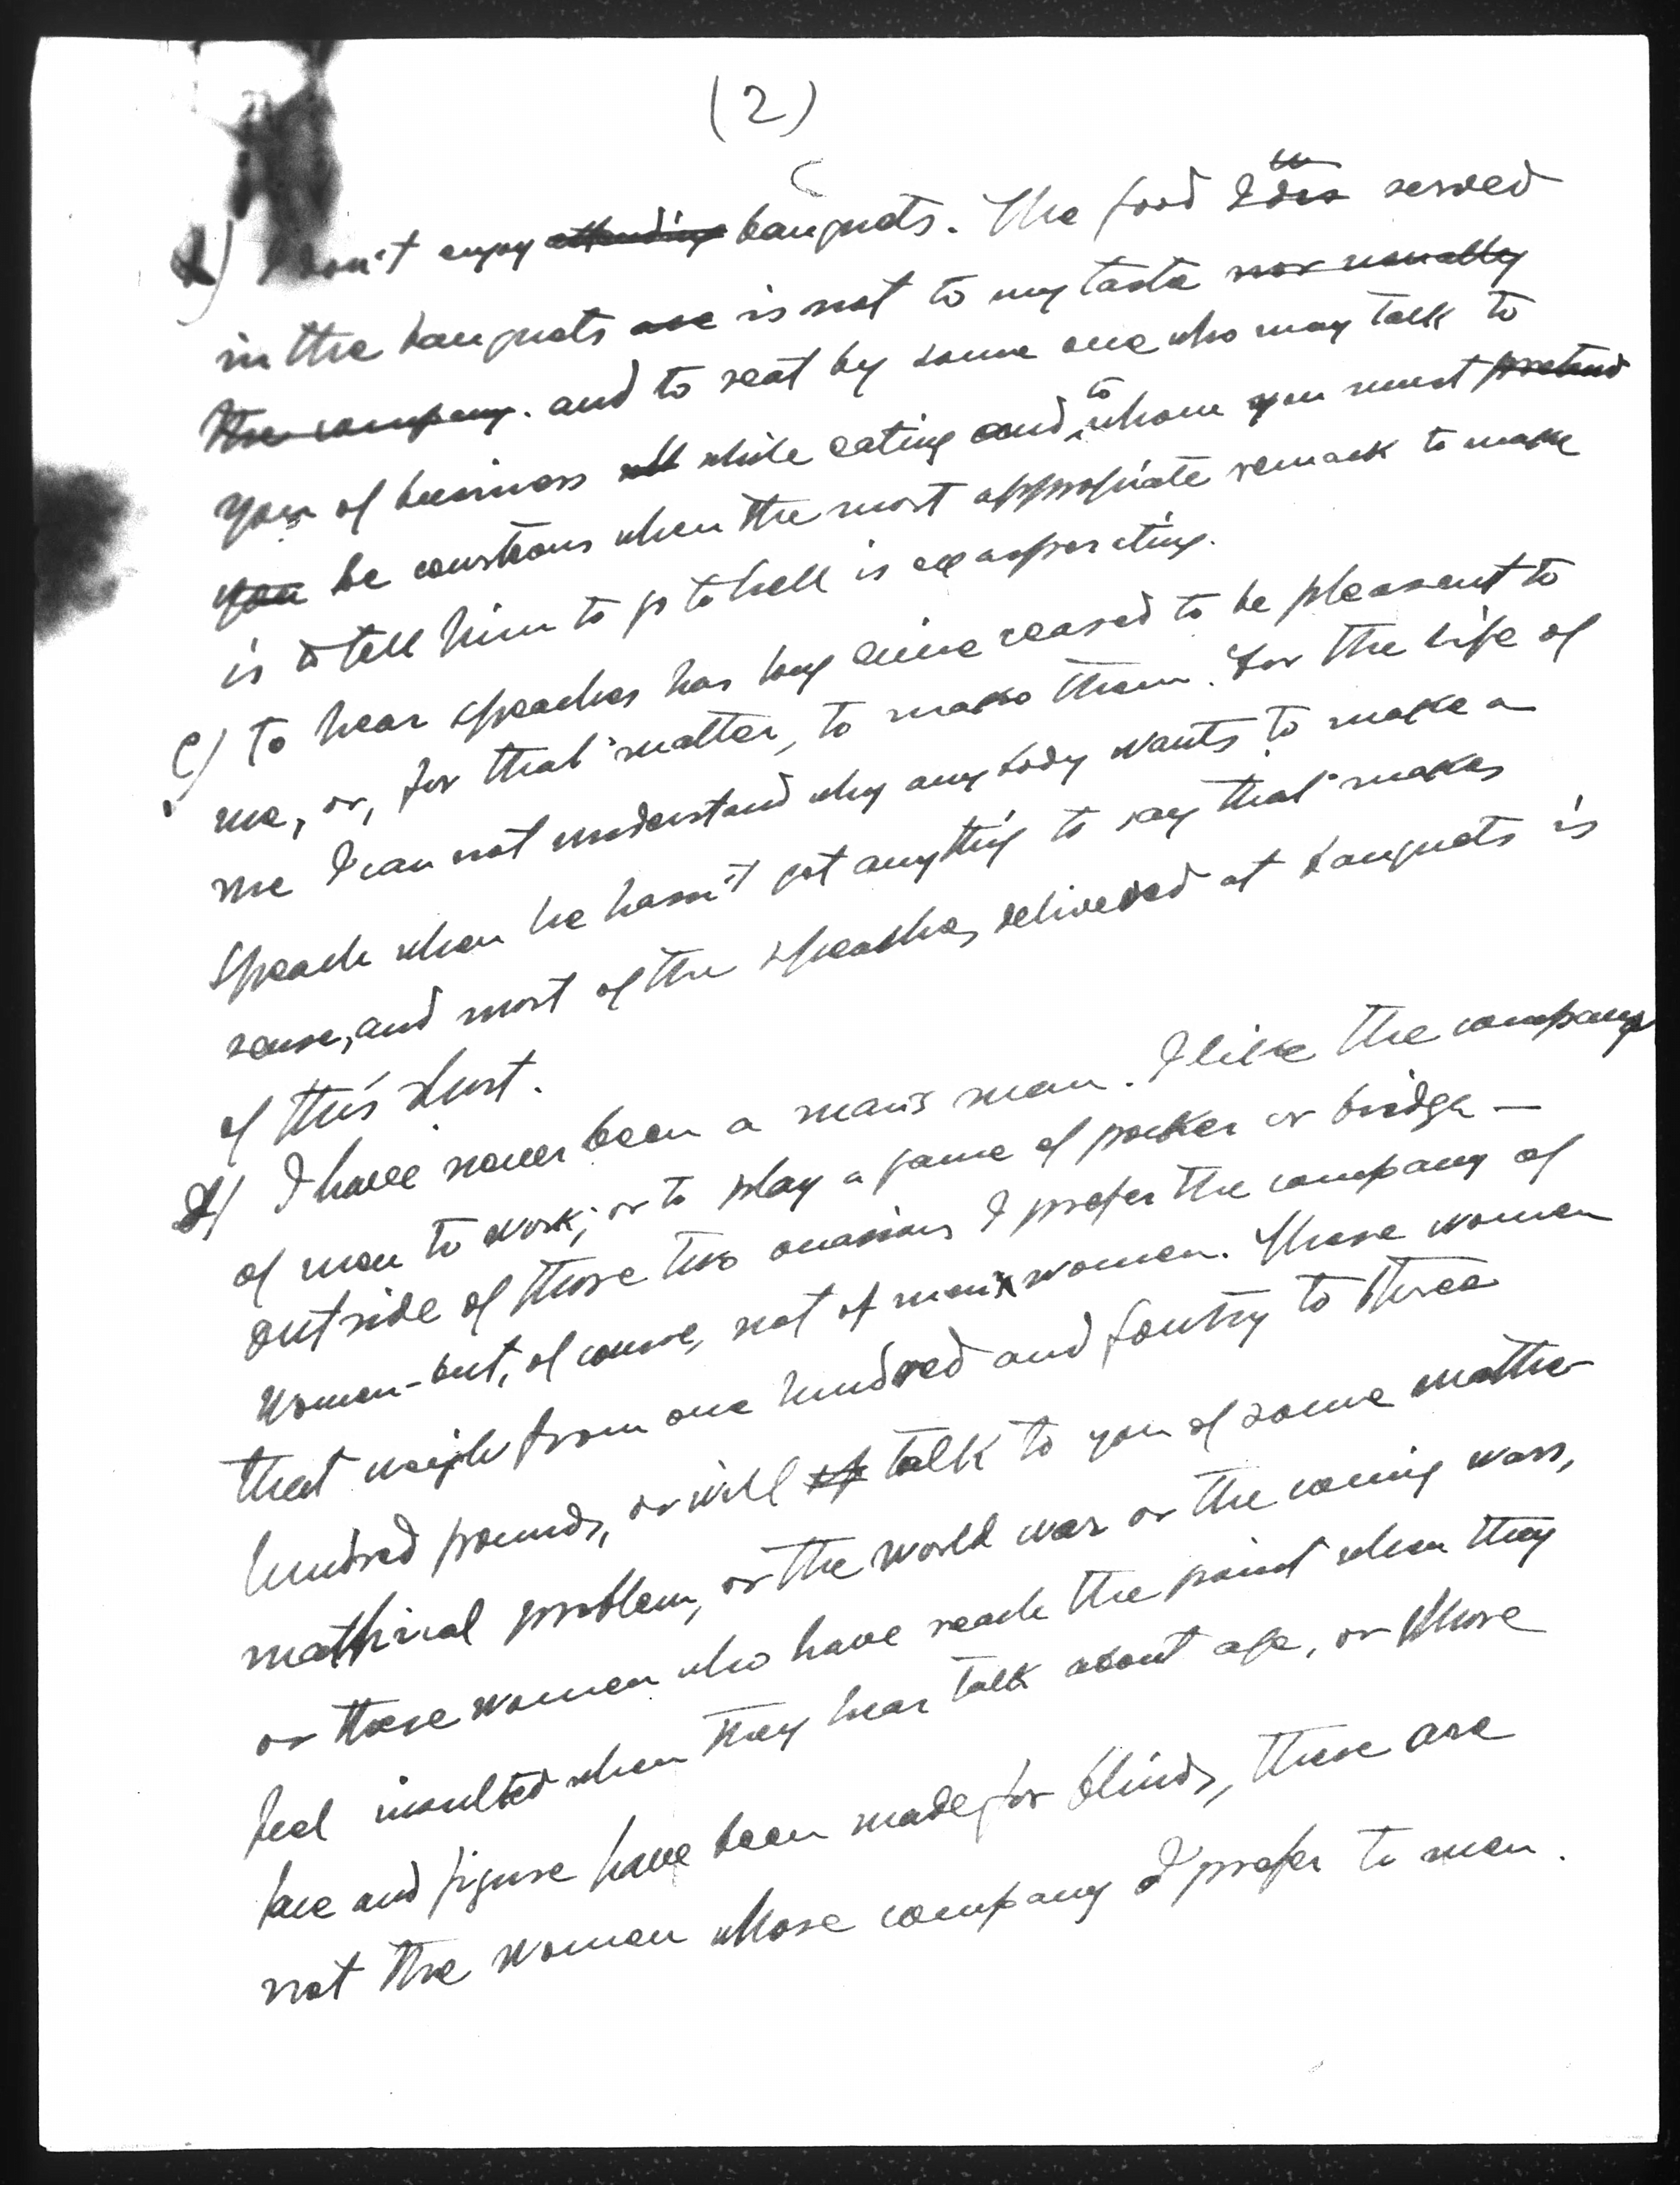 (2)
b) I don't enjoy attending banquets. The food served
in the banquets are is not to my taste nor usually
the company. and to seat by some one who may talk to
you of business while eating and, to whom you must pretend
you be courteous when the most appropriate remark to make
is to tell him to go to hell is exasperating.
c) To hear speaches has long since ceased to be pleasent to
me, or, for that matter, to make them. For the life of
me I can not understand why any body wants to make a
speach when he hasn't got anything to say that makes
sense, and most of the speaches delivered at banquets is
of this sort.
d) I have never been a man's man. I like the company
of men to work; or to play a game of poker or bridge —
outside of those two occasions I prefer the company of
women - but, of course, not of women. Those women
that weigh from one hundred and fourty to three
hundred pounds, or will talk to you of some mathe-
mathical problem, or the world war or the coming wars,
or those women who have reach the point when they
feel insulted when they hear talk about age, or those
face and figure have been made for blinds, these are
not the women whose company I prefer to men.